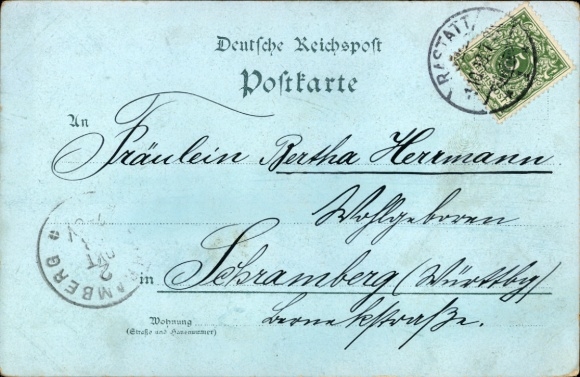 Deutsche Reichspost
Postkarte
RASTATT
An
Fräulein Bertha Herrmann
Wohlgeboren
in Schramberg (Württbg)
Bernekstraße.
Wohnung
(Straße und Hausnummer)